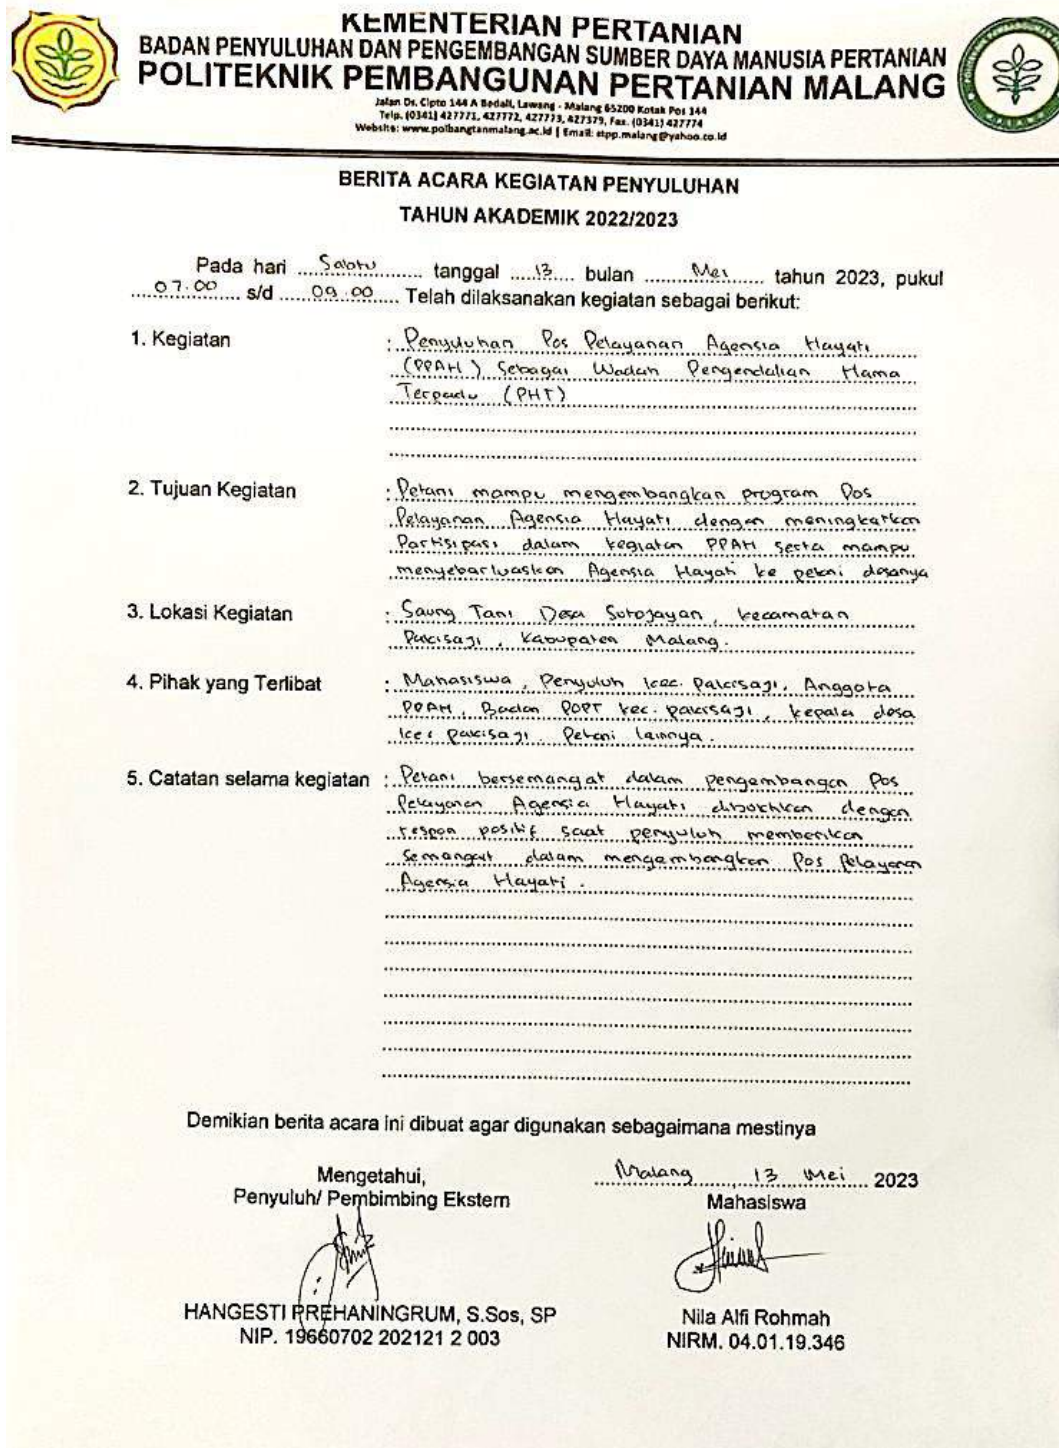 KEMENTERIAN PERTANIAN
BADAN PENYULUHAN DAN PENGEMBANGAN SUMBER DAYA MANUSIA PERTANIAN
POLITEKNIK PEMBANGUNAN PERTANIAN MALANG
Jalan Dr. Cipto 144 A Bedali, Lawang - Malang 65200 Kotak Pos 144
Telp. (0341) 427771, 427772, 427773, 427379, Fax. (0341) 427774
Website: www.polbangtanmalang.ac.id | Email: stpp.malang@yahoo.co.id
BERITA ACARA KEGIATAN PENYULUHAN
TAHUN AKADEMIK 2022/2023
Pada hari Sabtu tanggal 13 bulan Mei tahun 2023, pukul
07.00 s/d 09.00 Telah dilaksanakan kegiatan sebagai berikut:
1. Kegiatan : Penyuluhan Pos Pelayanan Agensia Hayati
(PPAH) Sebagai Wadah Pengendalian Hama
Terpadu (PHT)
2. Tujuan Kegiatan : Petani mampu mengembangkan program Pos
Pelayanan Agensia Hayati dengan meningkatkan
Partisipasi dalam kegiatan PPAH serta mampu
menyebarluaskan Agensia Hayati ke petani desanya
3. Lokasi Kegiatan : Saung Tani Desa Sutojayan, kecamatan
Pakisaji, Kabupaten Malang.
4. Pihak yang Terlibat : Mahasiswa, Penyuluh kec. Pakisaji, Anggota
PPAH, Badan POPT kec. pakisaji, kepala desa
kec pakisaji Petani lainnya.
5. Catatan selama kegiatan : Petani bersemangat dalam pengembangan Pos
Pelayanan Agensia Hayati dibuktikan dengan
respon positif saat penyuluh memberikan
Semangat dalam mengembangkan Pos Pelayanan
Agensia Hayati.
Demikian berita acara ini dibuat agar digunakan sebagaimana mestinya
Malang, 13 Mei 2023
Mengetahui,
Penyuluh/ Pembimbing Ekstern
Mahasiswa
HANGESTI PREHANINGRUM, S.Sos, SP
NIP. 19660702 202121 2 003
Nila Alfi Rohmah
NIRM. 04.01.19.346